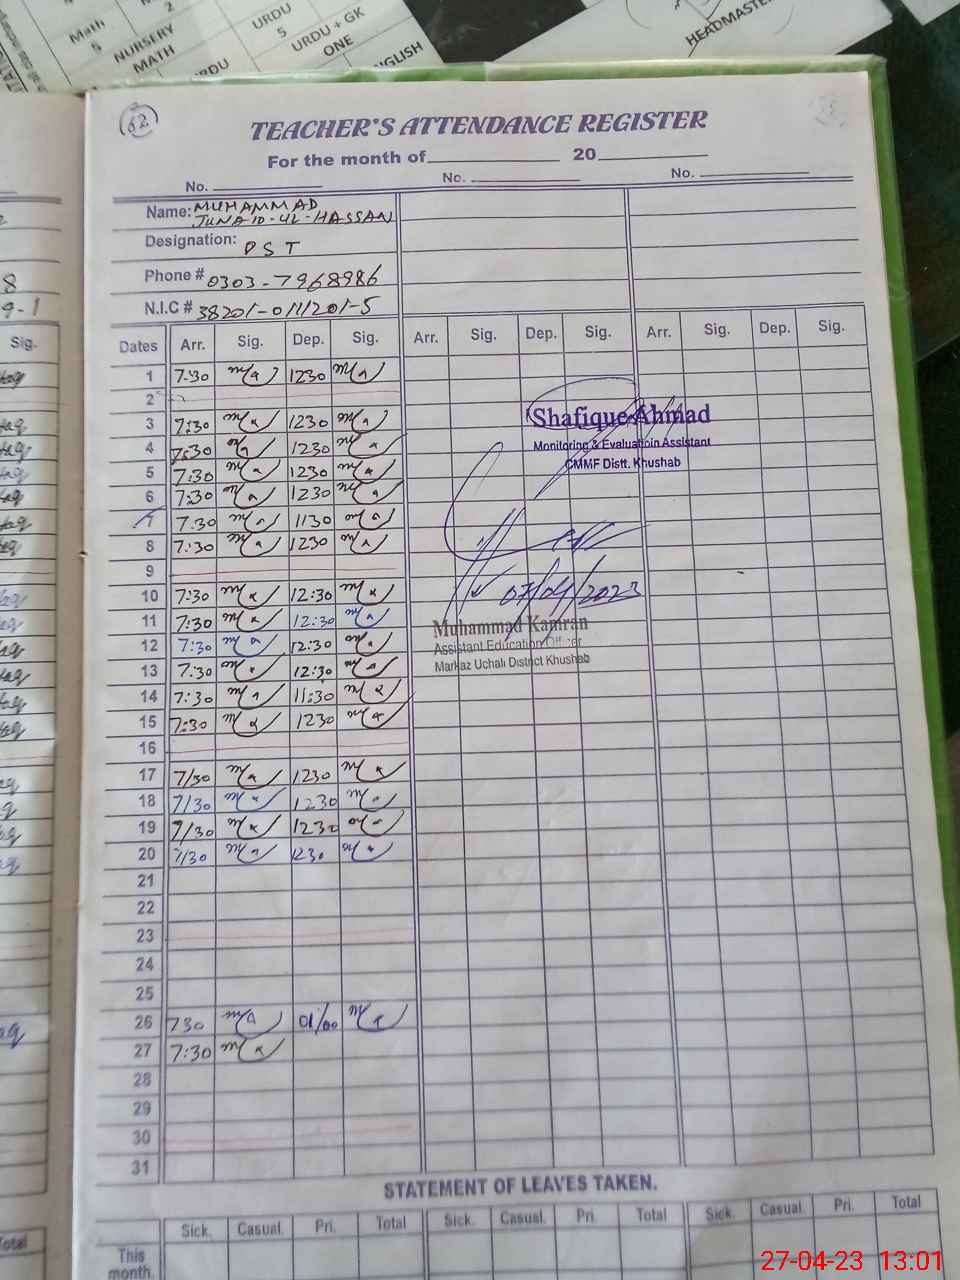 Math
5
2
NURSERY
MATH
URDU
5
URDU + GK
ONE
HEADMASTER
62
TEACHER'S ATTENDANCE REGISTER
For the month of 20
No. No. No.
Name: MUHAMMAD
JUNAID-UL-HASSAN
Designation: PST
Phone # 0303-7968986
N.I.C # 38201-0111201-5
Dates Arr. Sig. Dep. Sig. Arr. Sig. Dep. Sig. Arr. Sig. Dep. Sig.
1 7:30 1230
2
3 7:30 1230
4 7:30 1230
5 7:30 1230
6 7:30 1230
7 7:30 1130
8 7:30 1230
9
10 7:30 12:30
11 7:30 12:30
12 7:30 12:30
13 7:30 12:30
14 7:30 11:30
15 7:30 1230
16
17 7/30 1230
18 7/30 1230
19 7/30 1230
20 7/30 1230
21
22
23
24
25
26 730 01/00
27 7:30
28
29
30
31
Shafique Ahmad
Monitoring & Evaluatioin Assistant
CMMF Distt. Khushab
07/04/2023
Muhammad Kamran
Assistant Education Officer
Markaz Uchali District Khushab
STATEMENT OF LEAVES TAKEN.
Sick. Casual. Pri. Total Sick. Casual. Pri. Total Sick. Casual. Pri. Total
This
month.
Sig.
27-04-23 13:01